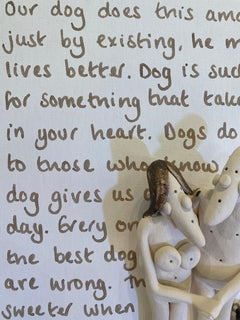 Our dog does this ama
just by existing, he m
lives better. Dog is suc
for something that take
in your heart. Dogs do
to those who know
dog gives us
day. Every on
the best dog
are wrong.
sweeter when